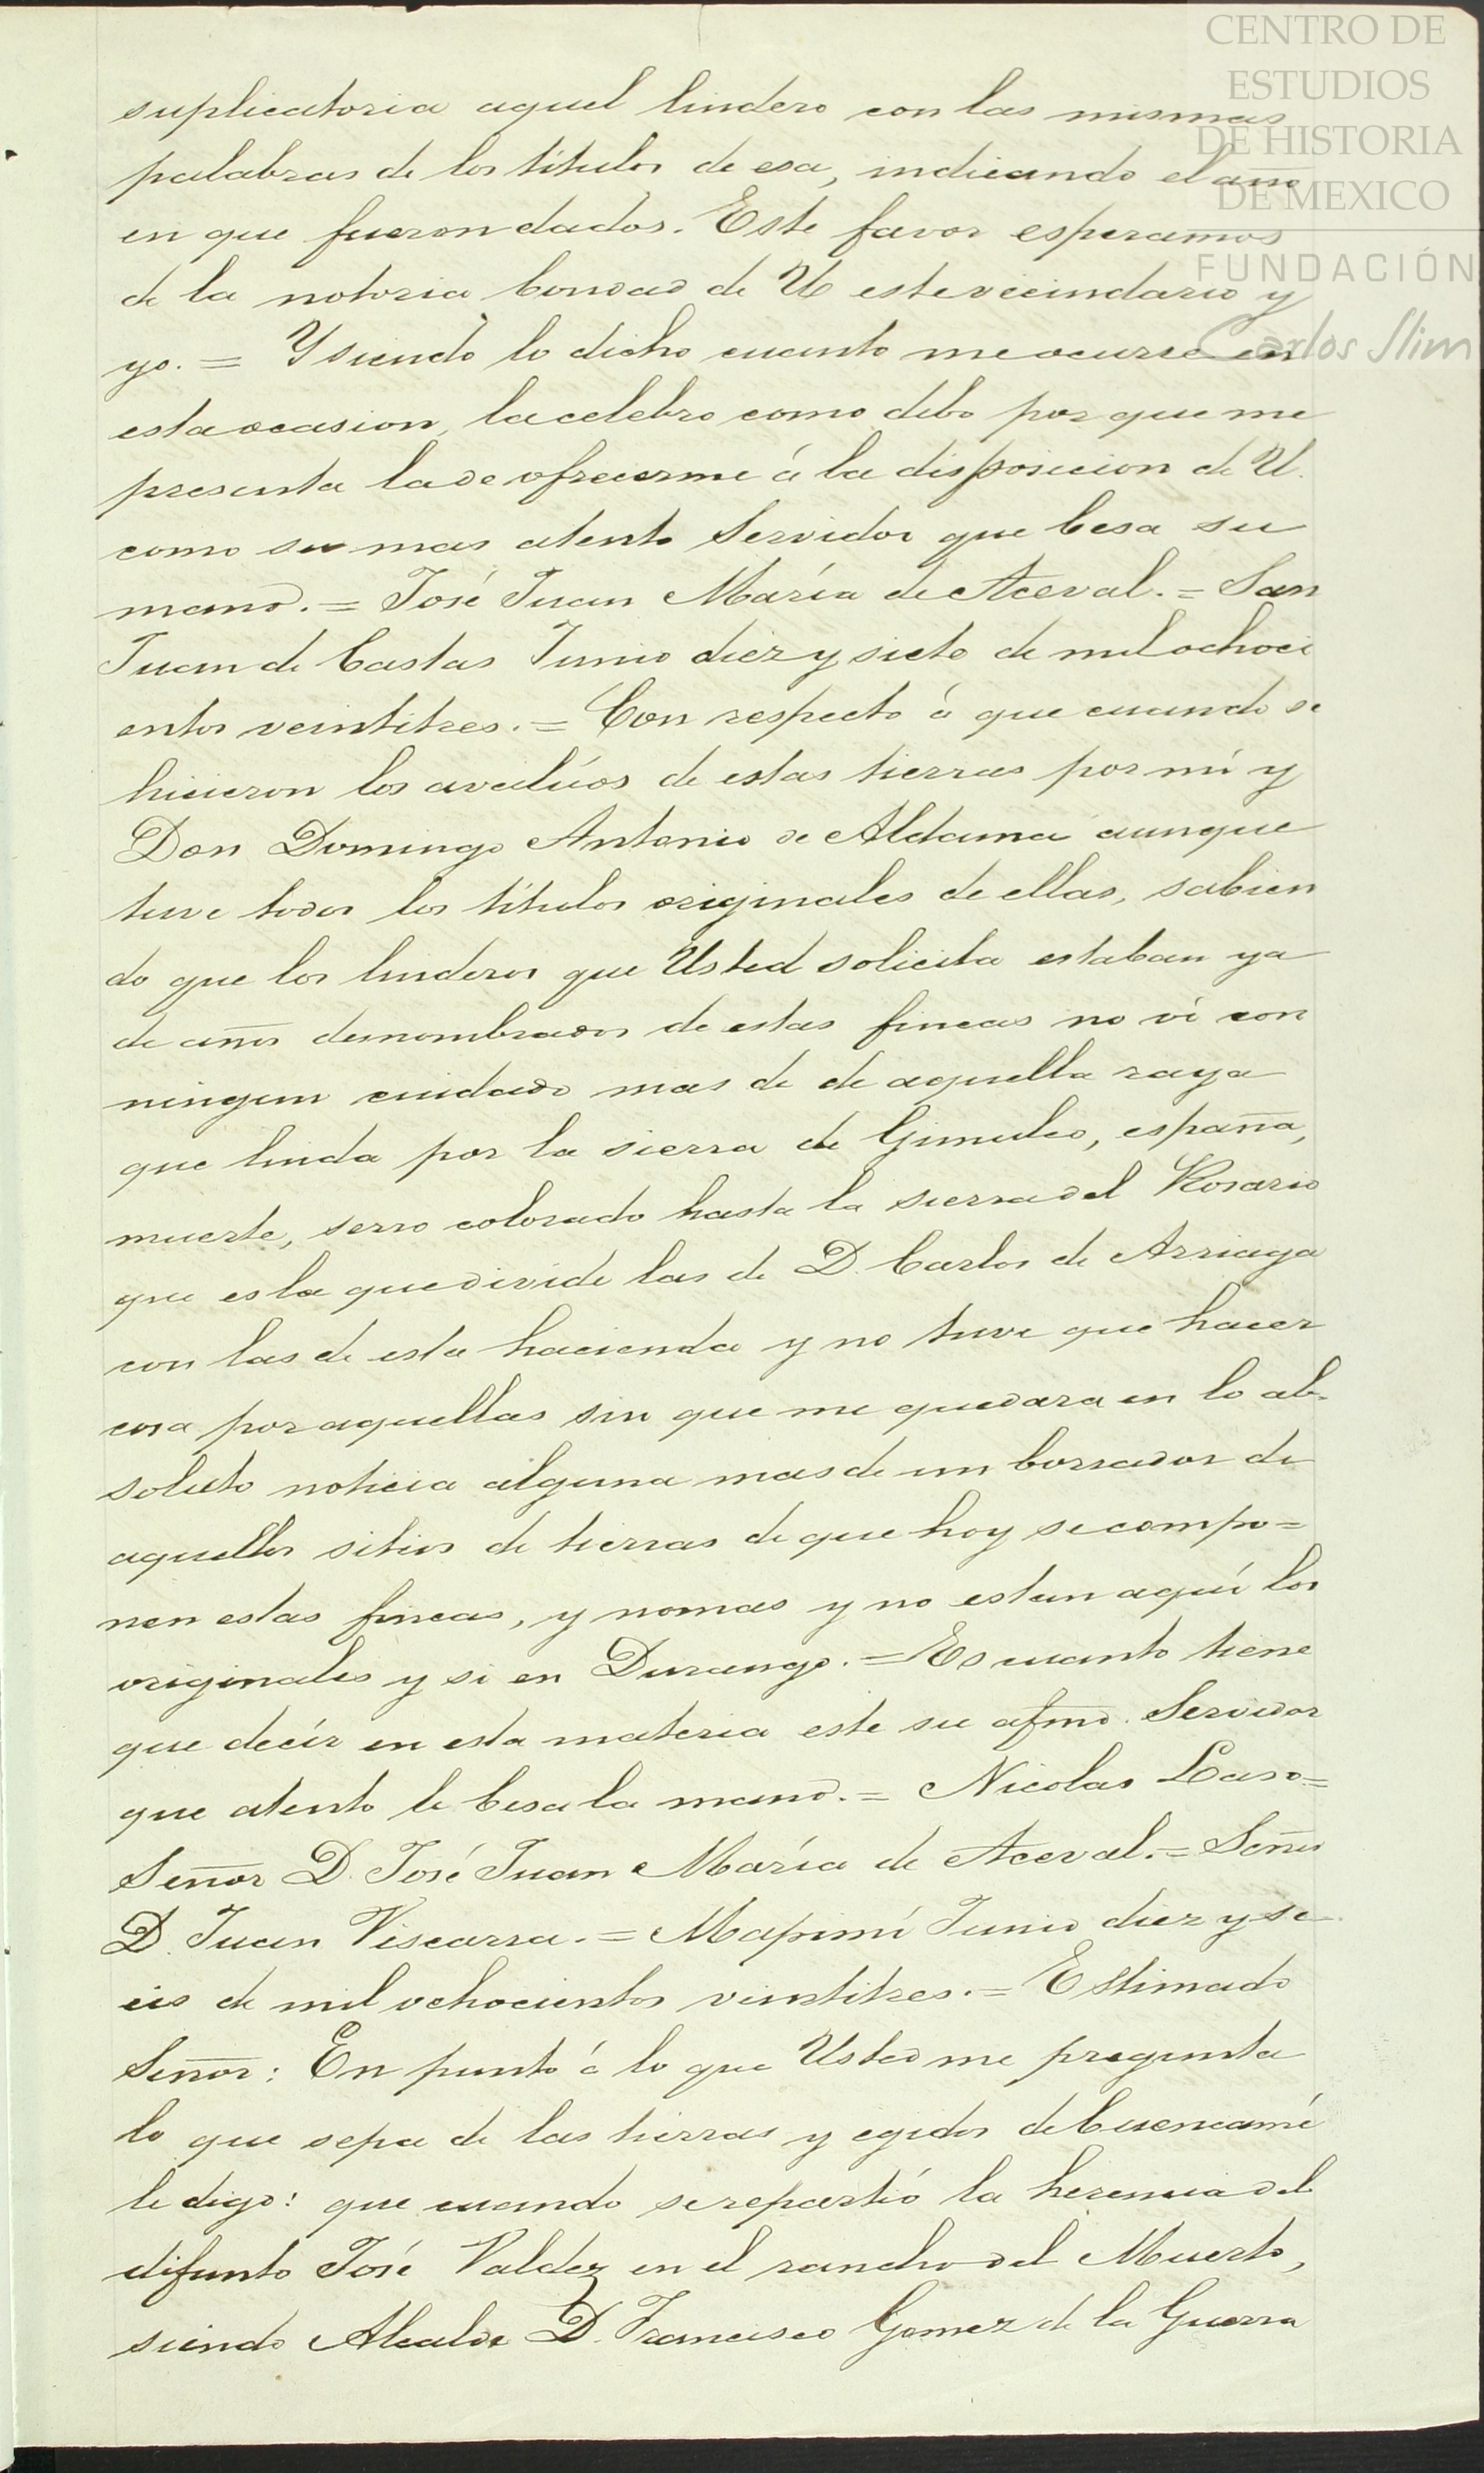 CENTRO DE
ESTUDIOS
DE HISTORIA
DE MEXICO
FUNDACIÓN
Carlos Slim
suplicatoria aquel lindero con las mismas
palabras de los titulos de esa, indicando el año
en que fueron dados. Este favor esperamos
de la notoria bondad de U este vecindario y
yo. = Y siendo lo dicho cuanto me ocurre en
esta ocasion, la celebro como debo por que me
presenta la de ofrecerme á la disposicion de U.
como su mas atento Servidor que besa su
mano. = José Juan María de Aceval. = San
Juan de Castas Junio diez y siete de mil ochoci
entos veintitres. = Con respecto á que cuando se
hicieron los avalúos de estas tierras por mi y
Don Domingo Antonio de Aldama aunque
tuve todos los titulos originales de ellas, sabien
do que los linderos que Usted solicita estaban ya
de años desmombrados de estas fincas no ví con
ningun cuidado mas de de aquella raya
que linda por la sierra de Gimulco, españa,
muerte, serro colorado hasta la sierra del Rosario
que es la que divide las de D. Carlos de Arriaga
con las de esta hacienda y no tuve que hacer
cosa por aquellas sin que me quedara en lo ab-
soluto noticia alguna mas de un borrador de
aquellos sitios de tierras de que hoy se compo=
nen estas fincas, y nomas y no estan aquí los
originales y si en Durango. = Es cuanto tiene
que decír en esta materia este su afmo. Servidor
que atento le besa la mano. = Nicolas Laso =
Señor D. José Juan María de Aceval. = Señor
D. Juan Viscarra. = Mapimí Junio diez y se
eis de mil ochocientos vintitres. = Estimado
Señor: En punto á lo que Usted me pregunta
lo que sepa de las tierras y egidos de Cuencamé
le digo: que cuando se repartió la herencia del
difunto José Valdez en el rancho del Muerto,
siendo Alcalde D. Francisco Gomez de la Guerra